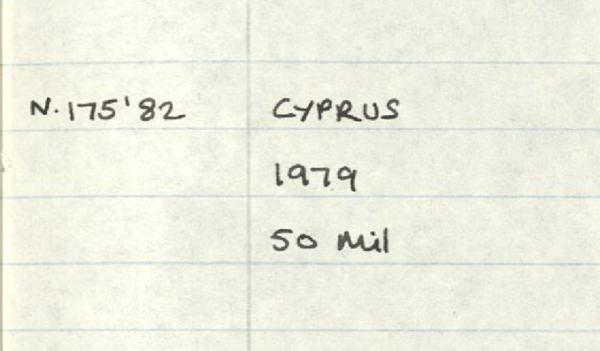 N.175'82 CYPRUS
1979
50 Mil